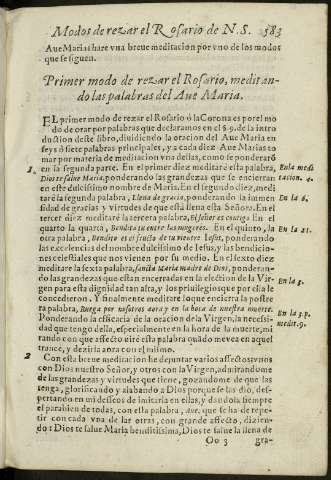 Modos de rezar el Rosario de N.S. 583
Aue Marias hare vna breue meditacion por vno de los modos
que se siguen.
Primer modo de rezar el Rosario, meditan-
do las palabras del Aue Maria.
EL primer modo de rezar el Rosario ò la Corona es por el mo
do de orar por palabras que declaramos en el §.9. de la intro
duction deste libro, diuidiendo la oracion del Aue Maria en
seys ò siete palabras principales, y a cada diez Aue Marias to
mar por materia de meditacion vna dellas, como se ponderarô
en la segunda parte. En el primer diez meditarè esta palabra,
Dios te salue Maria, ponderando las grandezas que se encierran
en este dulcissimo nombre de Maria. En el segundo diez, medi
tarè la segunda palabra, Llena de gracia, ponderando la inmen
sidad de gracias y virtudes de que està llena esta Señora. En el
tercer diez meditarè la tercera palabra, El señor es contigo En el
quarto la quarta, Bendita tu entre las mugeres. En el quinto, la
otra palabra, Bendito es el fructo de tu vientre Iesus, ponderando
las excelencias del nombre dulcissimo de Iesus, y las bendicio-
nes celestiales que nos vienen por su medio. En el sexto diez
meditarè la sexta palabra, santa Maria madre de Dios, ponderan-
do las grandezas que estan encerradas en la election de la Vir-
gen para esta dignidad tan alta, y los priuilegios que por ella le
concedieron. Y finalmente meditarè lo que encierra la postre
ra palabra, Ruega por nosotros aora y en la hora de nuestra muerte.
Ponderando la efficacia de la oracion de la Virgen, la necessi-
dad que tengo della, especialmente en la hora de la muerte, mi
rando con que affecto dirè esta palabra quãdo me vea en aquel
trance, y dezirla aora con el mismo.
Con esta breue meditacion he de juntar varios affectos vnos
con Dios nuestro Señor, y otros con la Virgen, admirandome
de las grandezas y virtudes que tiene, gozandome de que las
tenga, glorificando y alabando a Dios porque se las dio, des-
pertando en mi desseos de imitarla en ellas, y dandola siempre
el parabien de todas, con esta palabra, Aue, que se ha de repe-
tir con cada vna de las otras, con grande affecto, dizien-
do: Dios te salue Maria benditissima, Dios te salue la llena de
Oo 3 gra-
1.
2
En la medi
tacion. 4.
En la 6.
En la 21.
En la 5.
En la 5.p.
medit.9.